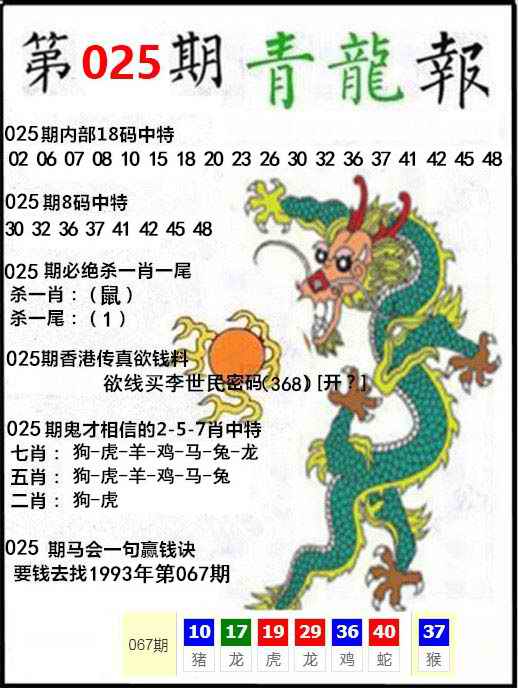 第025期青龍報
025期内部18码中特
02 06 07 08 10 15 18 20 23 26 30 32 36 37 41 42 45 48
025期8码中特
30 32 36 37 41 42 45 48
025 期必绝杀一肖一尾
杀一肖：（鼠）
杀一尾：（1）
025期香港传真欲钱料
欲线买李世民密码(368)[开？]
025期鬼才相信的2-5-7肖中特
七肖：狗-虎-羊-鸡-马-兔-龙
五肖：狗-虎-羊-鸡-马-兔
二肖：狗-虎
025 期马会一句赢钱诀
要钱去找1993年第067期
067期 10 17 19 29 36 40 37
猪 龙 虎 龙 鸡 蛇 猴